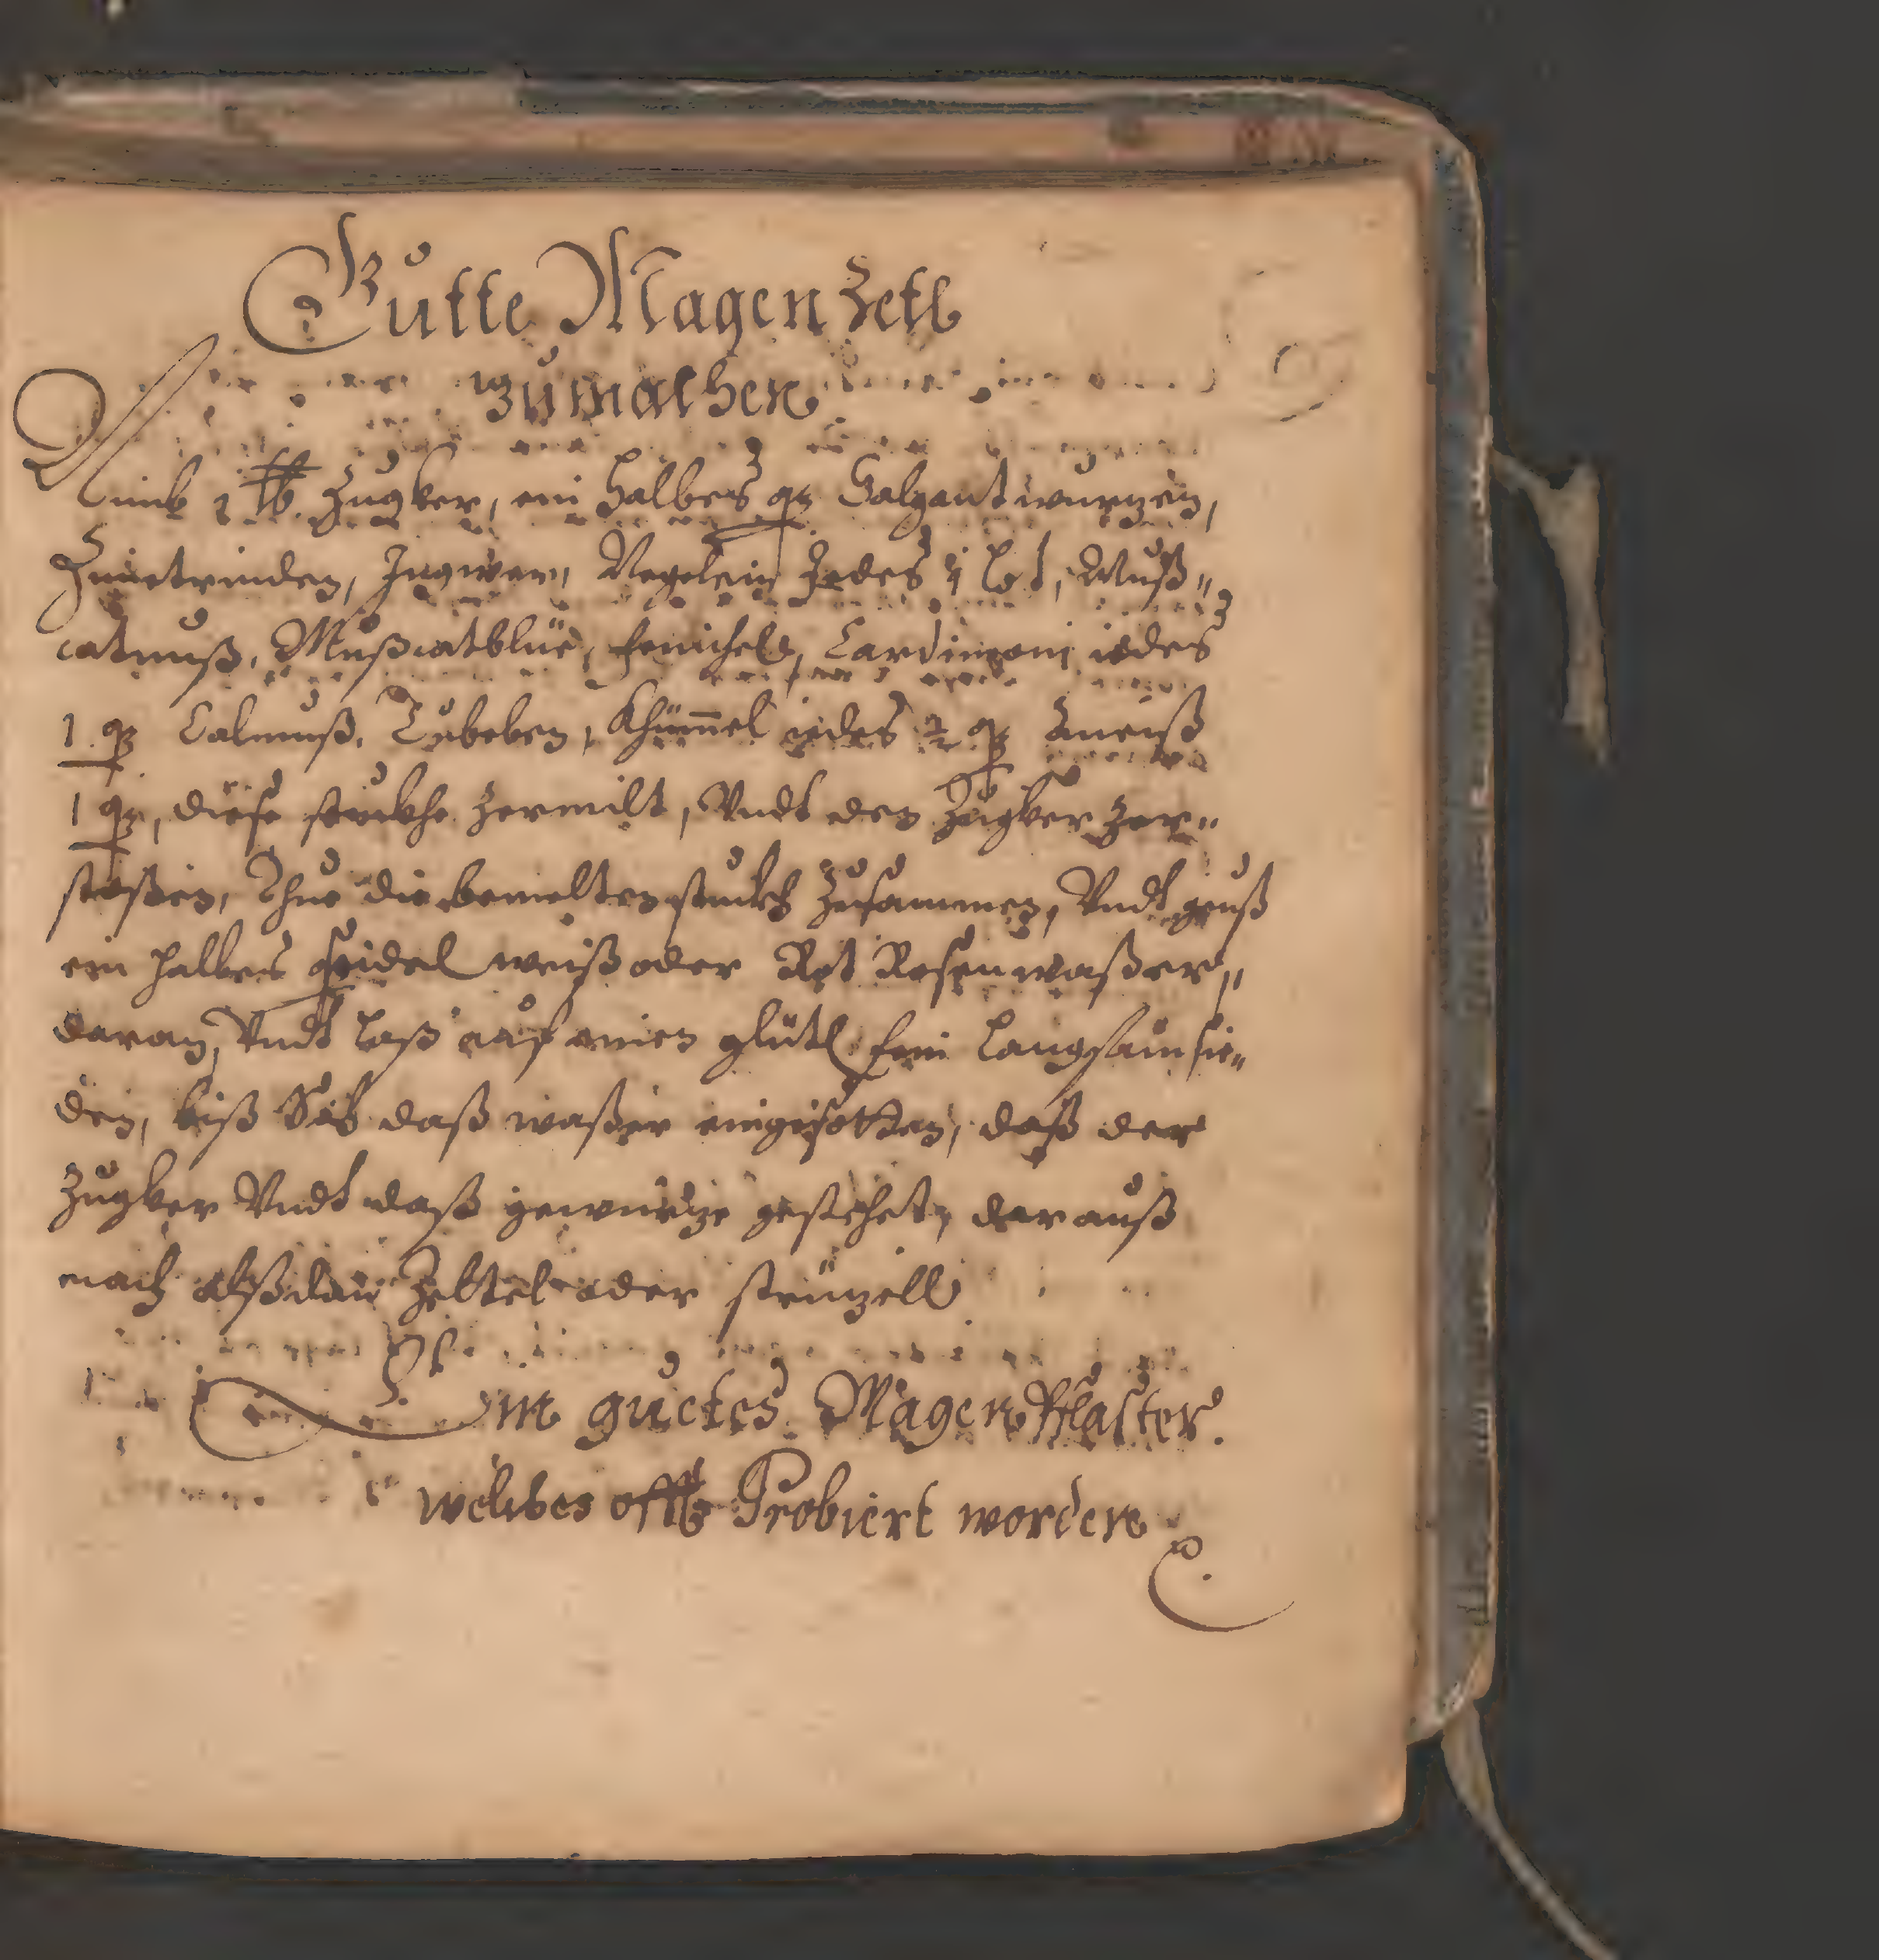 Gutte Magen Zetl
zumachen
Nimb 1 ℔. Zugker, ein halbes q Galgantwurzen,
Zimetrinden, Ingwer, Negelein Jedes ½ Lot, Muß„
catnuß, Mußcatblüe, fenichel, Cardimomj iedes
1 q Calmuß, Cubeben, Khüm̄el iedes ½ q Aneiß
1 q, diese stuckhe zermilt, Vndt den Zugker zer„
stoßen, Thue die bemelten stuckh zusammen, Vndt geuß
ein halbes seidel weiß oder Rot Rosenwaßer„
daran, Vndt laß auf einen glütl fein langsam sie„
den, biß sich daß waßer eingesotten, daß der
Zugker Vndt daß gewürtze gestehet, darauß
mach alßdan Zeltel oder strüzell
Ein guetes Magen Pflaster.
welches offt Probiert worden